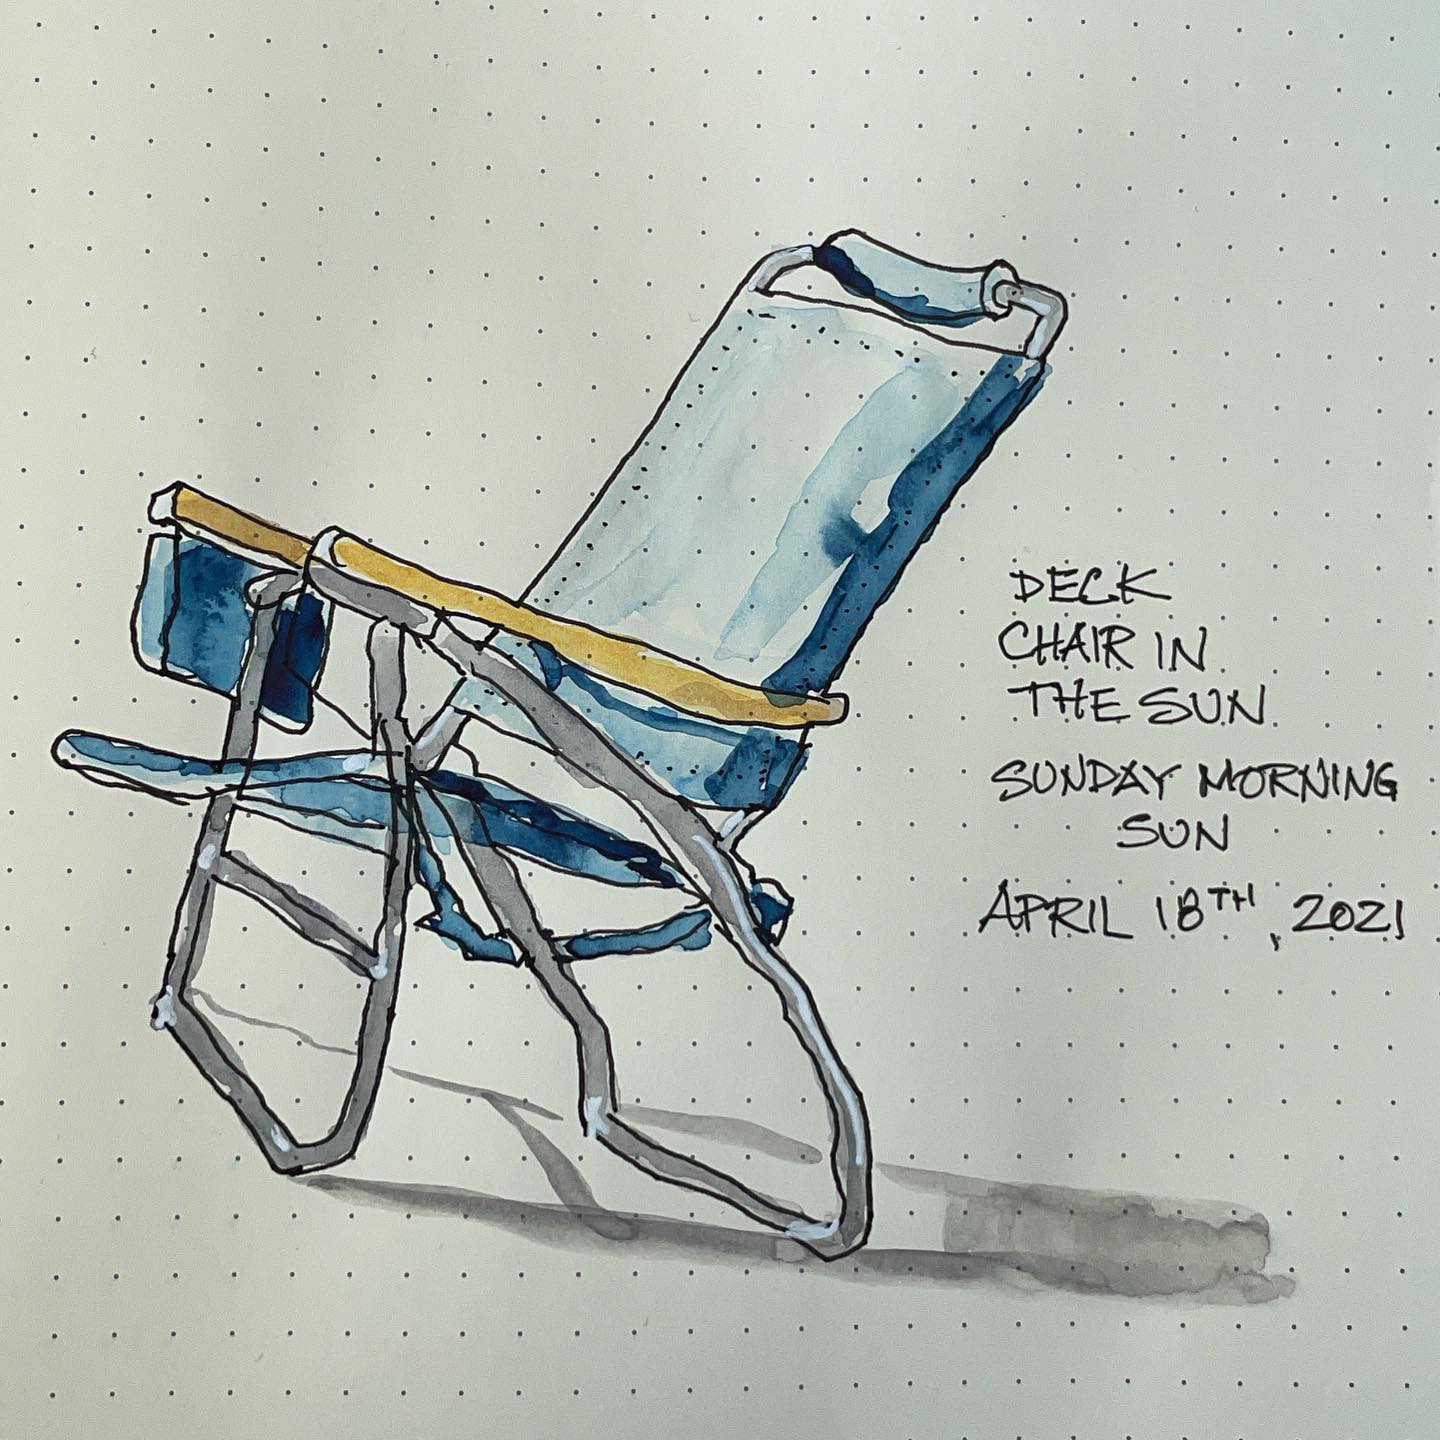 DECK
CHAIR IN
THE SUN
SUNDAY MORNING
SUN
APRIL 18TH, 2021